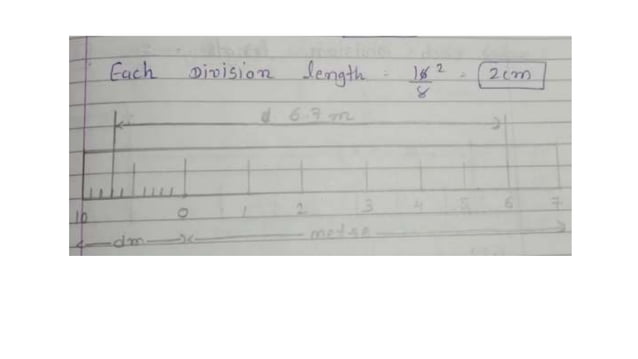 Each Division length = 16 2 / 8 = 2cm
6.7 m
10 0 1 2 3 4 5 6 7
dm metre